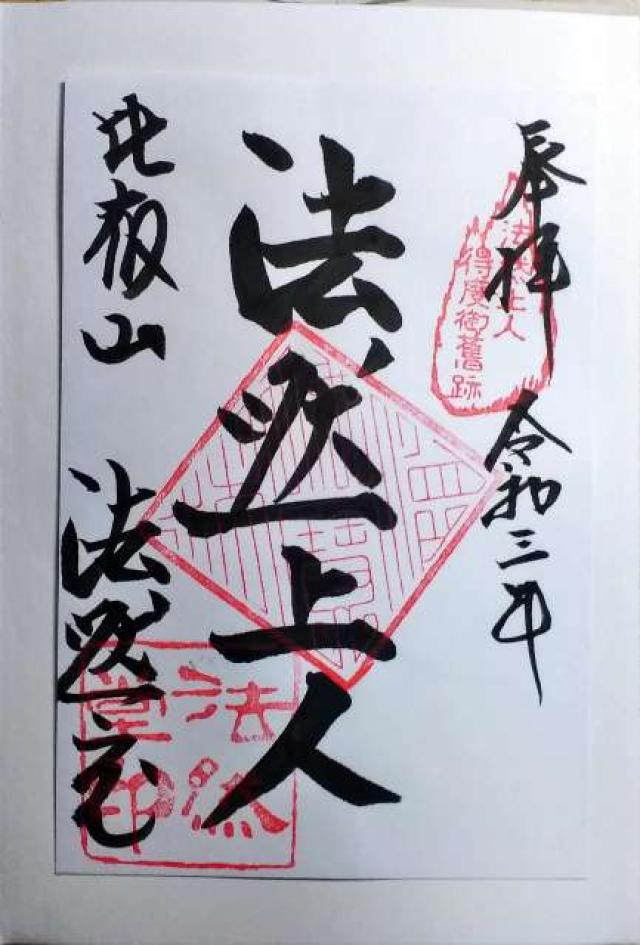 奉拝 令和三年
法然上人
得度御舊跡
法然上人
比叡山 法然堂
法然
堂印